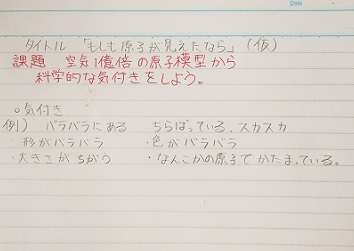 Date
タイトル 「もしも原子が見えたなら」(仮)
課題 空気1億倍の原子模型から
科学的な気付きをしよう。
○気付き
例) バラバラにある ちらばっている、スカスカ
・形がバラバラ ・色がバラバラ
・大きさがちがう ・なんこかの原子でかたまっている。